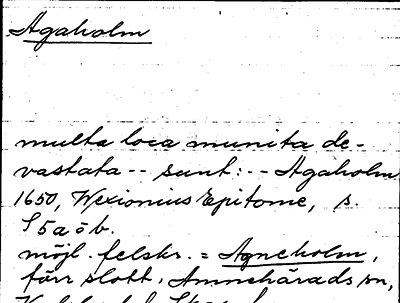 Agaholm
multa loca munita de-
vastata -- sunt: -- Agaholm
1650, Wexionius Epitome, s.
S 5 a ö b.
möjl. felskr. = Agneholm,
förr slott, Amnehärads sn,